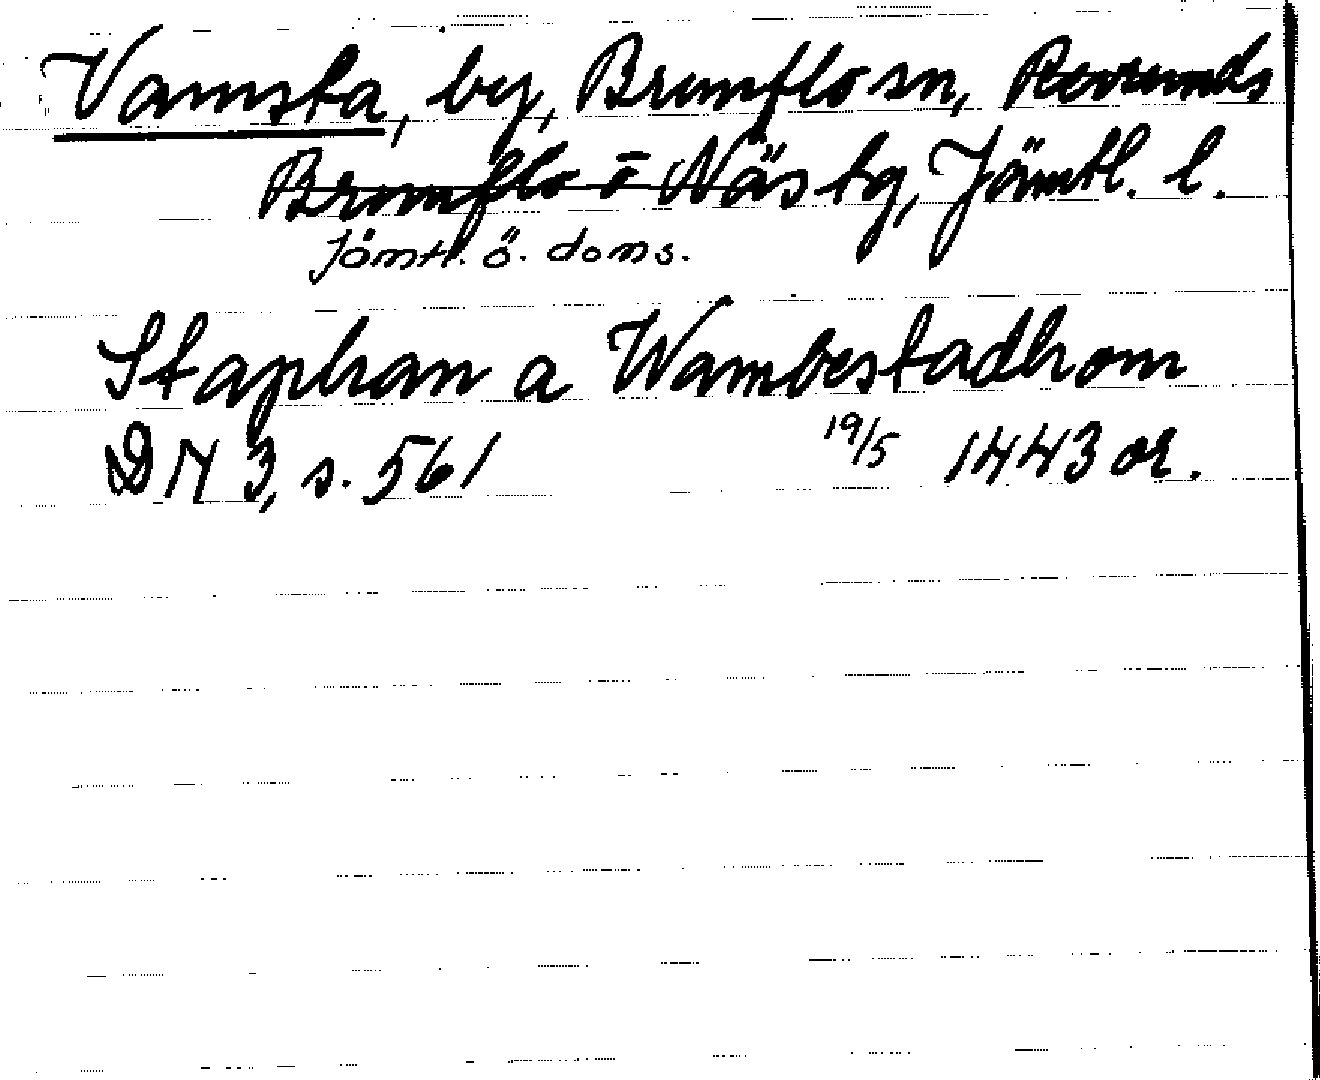 Vamsta, by, Brunflo sn, Revsunds
Brunflo o Näs tg, Jämtl. l.
Jämtl. ö. doms.
Staphan a Wambestadhom
DN 3, s. 561 19/5 1443 or.